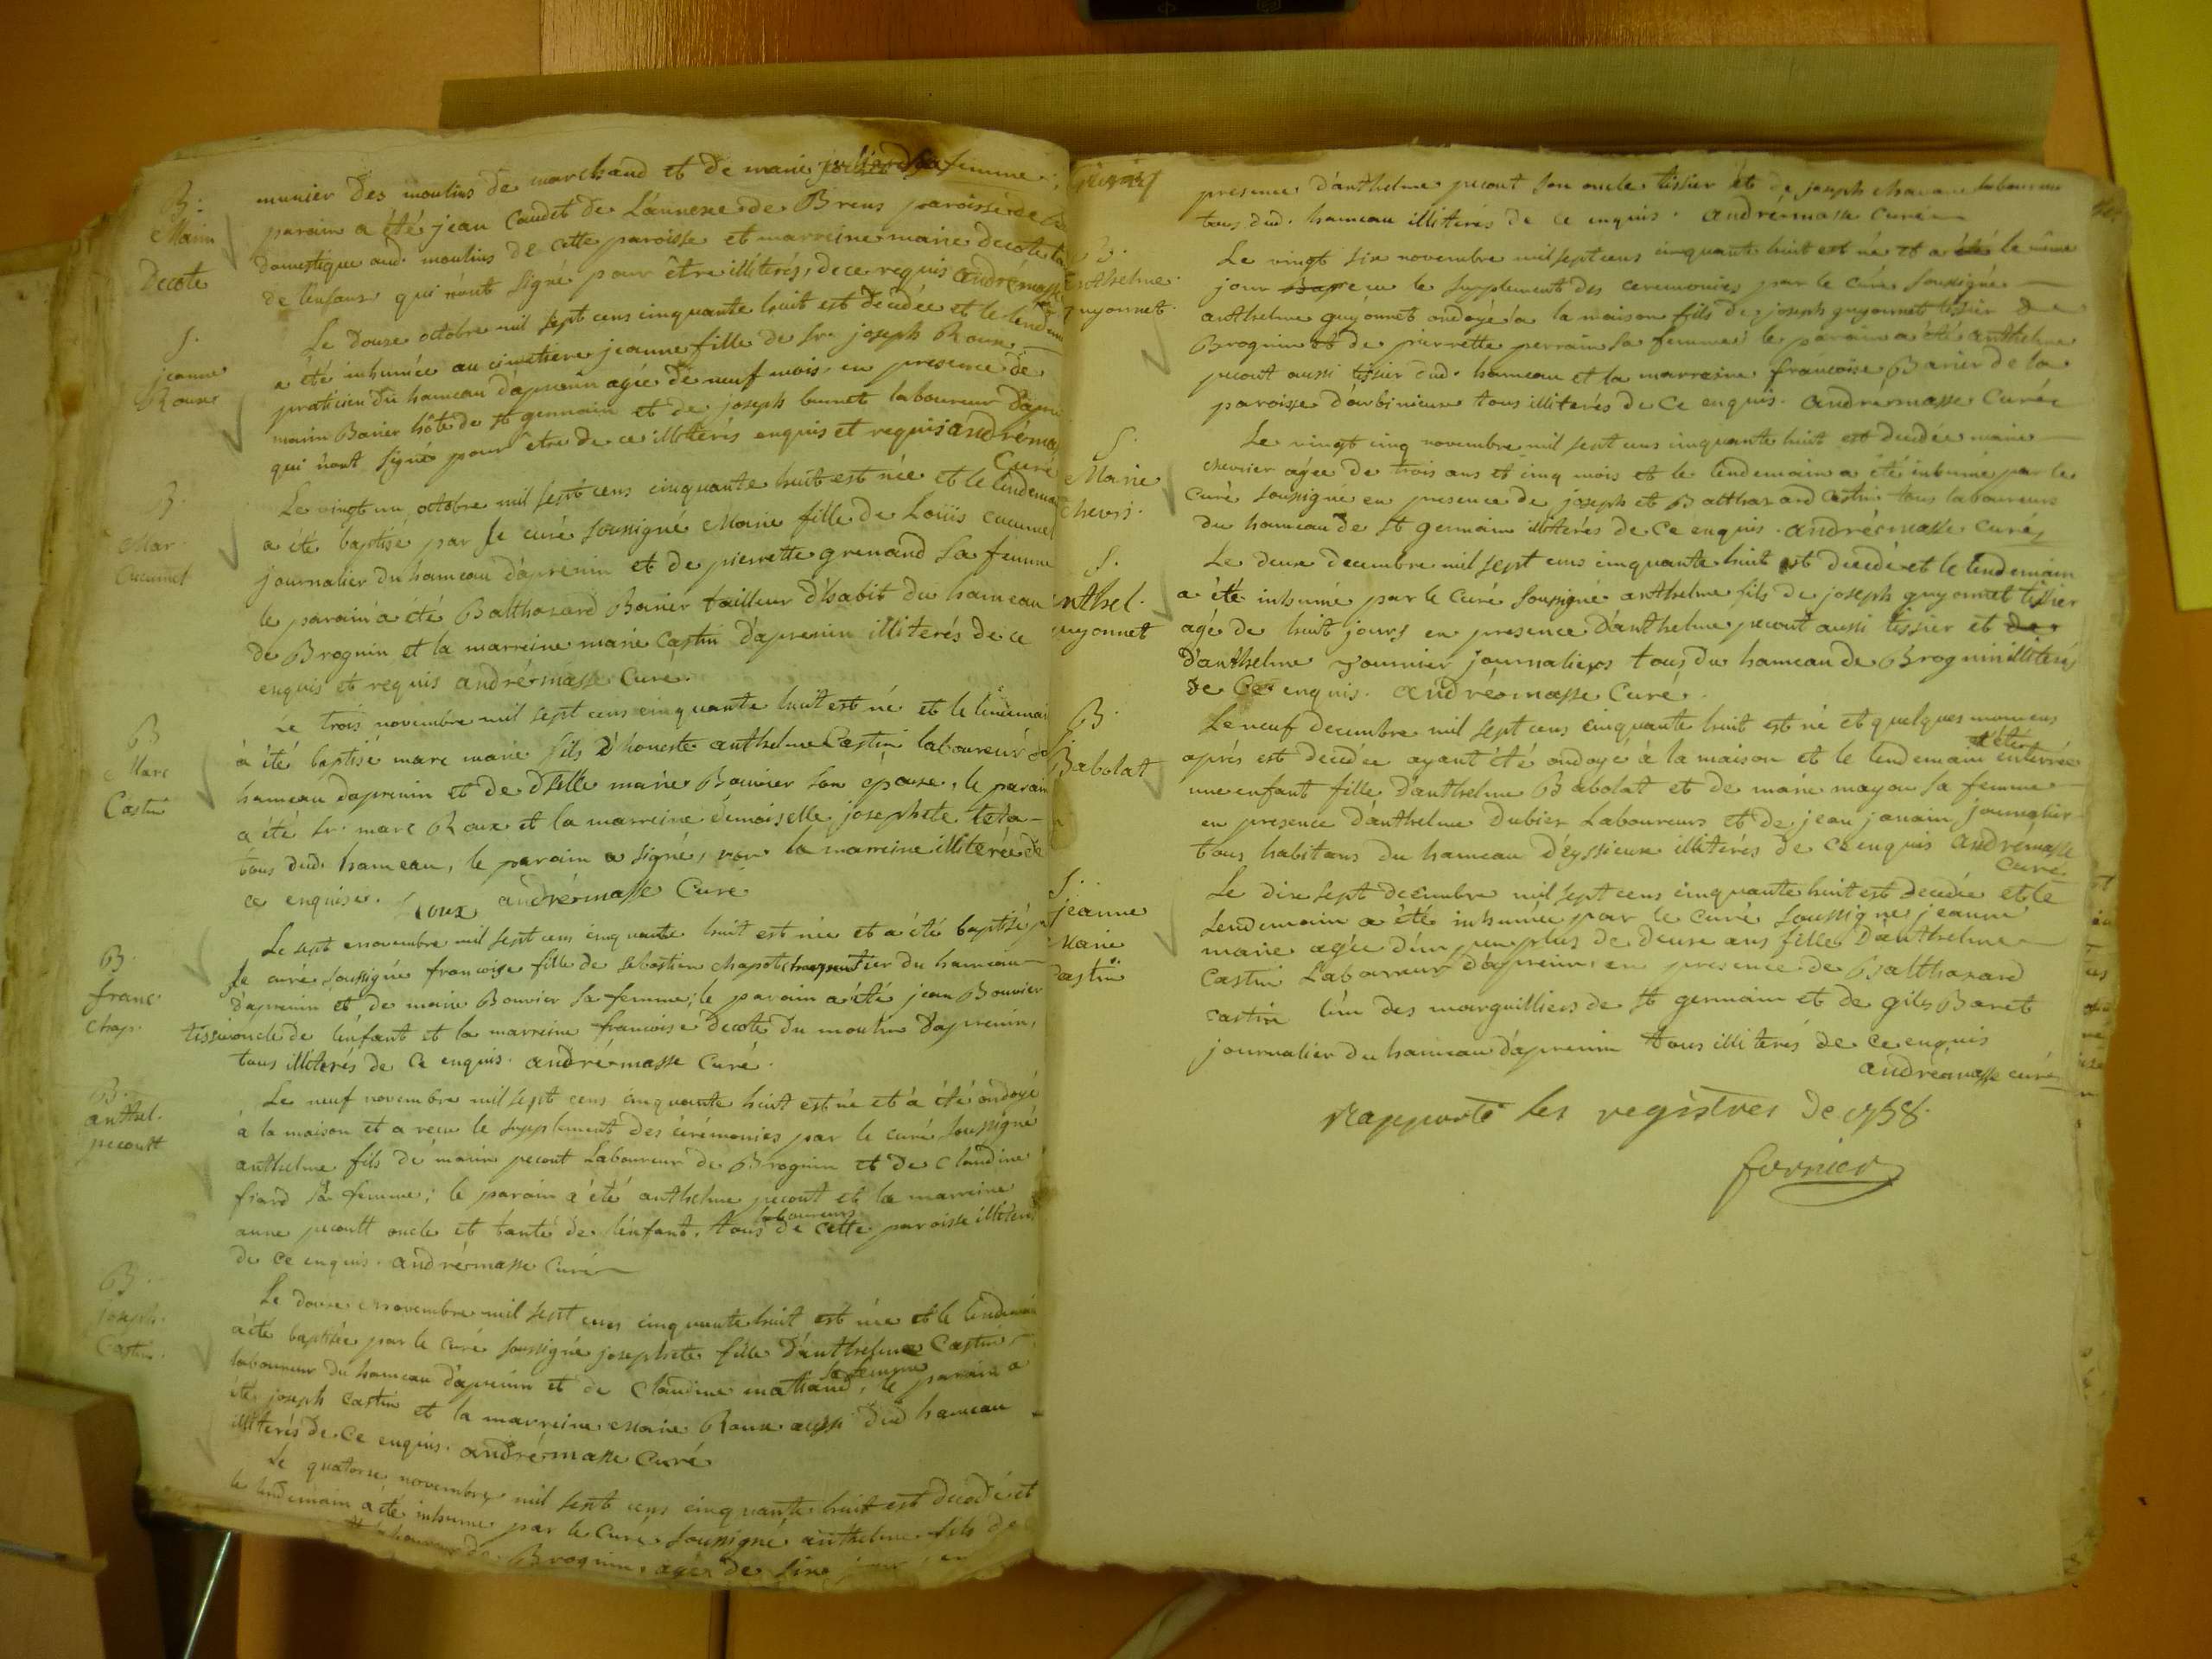 B.
Marin
Decote
munier des moulins de marchand et de marie sa femme;
parain a été jean Caudet de L'annexe de Brens paroisse de
domestique aud. moulins de cette paroisse et marreine marie decote
de l'enfant qui n'ont signé pour être illiterés, de ce requis andré masse
S.
jeanne
Roux
Le douse octobre mil sept cens cinquante huit est decedée et le lendem
a été inhumée au cimetiere jeanne fille de Sr. joseph Roux
praticien du hameau d'apremin agée de neuf mois, en presence de
marin Barier hôte de St germain et de joseph laboureur
qui n'ont signé pour être de ce illiterés enquis et requis andré ma
Curé
B.
Mar.
Cucumel
Le vingt un octobre mil sept cens cinquante huit est née et le lendema
a été baptisé par le curé soussigné Marie fille de Loüis cucumel
journalier du hameau d'apremin et de pierrette grenand sa femme
le parain a été Balthazard Barier tailleur d'habit du hameau
de Brognin et la marreine marie Castin d'apremin illiterés de ce
enquis et requis andré masse Curé.
B
Marc
Castin
Le trois novembre mil sept cens cinquante huit est né et le lendemai
à été baptisé marc marie fils d'honeste anthelme Castin laboureur
hameau d'apremin et de dselle marie Bouvier son épouse, le parain
a été Sr. marc Roux et la marreine demoiselle josephete
tous dud. hameau, le parain a signé, non la marreine illiterée de
ce enquise. Roux andré masse Curé
B.
franc.
Chap.
Le sept novembre mil sept cens cinquante huit est née et a été baptisé
le curé soussigné francoise fille de sebastien chapot charpentier du hameau
d'apremin et de marie Bouvier sa femme; le parain a été jean Bouvier
tissier oncle de l'enfant et la marreine francoise decote du moulin d'apremin,
tous illiterés de Ce enquis. andré masse Curé.
B.
anthel.
pecoutt
Le neuf novembre mil sept cens cinquante huit est né et à été ondoyé
à la maison et a recu le supplement des cérémonies par le curé soussigné
anthelme fils de marin pecout Laboureur de Brognin et de Claudine
fiard sa femme; le parain a été anthelme pecout et la marreine
anne pecoutt oncle et tante de l'enfant, tous laboureurs de cette paroisse illiteré
de ce enquis. andré masse Curé
B.
joseph.
Castin.
Le douse novembre mil sept cens cinquante huit est née et le lendemain
a été baptisée par le curé soussigné josephete fille d'anthelme Castin
laboureur du hameau d'apremin et de Claudine sa femme, le parain a
été joseph Castin et la marreine marie Roux aussi dud hameau
illiterés de Ce enquis. andré masse Curé
Le quatorse novembre mil sept cens cinquante huit est decedé et
le lendemain a été inhumé par le Curé soussigné anthelme fils de
laboureur de Brognin, agé de six en
presence d'anthelme pecout son oncle tissier et de joseph laboureur
tous dud. hameau illiterés de ce enquis. andré masse curé
B.
nthelme
guyonnet.
Le vingt six novembre mil sept cens cinquante huit est né et a été le même
jour recu le supplement des ceremonies par le Curé soussigné
anthelme guyonnet ondoyé a la maison fils de joseph guyonnet tissier de
Brognin et de pierrette perrain sa femme; le parain a été anthelme
pecout aussi tissier dud. hameau et la marreine francoise Barier de la
paroisse d'arbinieux tous illiterés de Ce enquis. andré masse Curé
S.
Marie
Chevri.
Le vingt cinq novembre mil sept cens cinquante huit est decedée marie
chevrier agée de trois ans et cinq mois et le lendemain a été inhumé par le
Curé soussigné en presence de joseph et Balthazard Castin tous laboureurs
du hameau de St germain illiterés de Ce enquis. andré masse Curé
S.
nthel.
guyonnet
Le deux decembre mil sept cens cinquante huit est decedé et le lendemain
a été inhumé par le Curé soussigné anthelme fils de joseph guyonnet tissier
agé de huit jours en presence d'anthelme pecout aussi tissier et de
d'anthelme fournier journaliers tous du hameau de Brognin illiterés
de Ce enquis. andré masse Curé.
B.
S.
Babolat
Le neuf decembre mil sept cens cinquante huit est né et quelques momens
aprés est decedée ayant été ondoyé à la maison et le lendemain a été enterrée
une enfant fille d'anthelme Babolat et de marie mayou sa femme
en presence d'anthelme Dubier Laboureurs et de jean janain journalier
tous habitans du hameau d'eyssieux illiterés de Ce enquis andré masse
Curé.
S.
jeanne
Marie
Castin
Le dix sept decembre mil sept cens cinquante huit est decedée et le
Lendemain a été inhumée par le Curé soussigné jeanne
marie agée d'un peu plus de deux ans fille d'anthelme
Castin Laboureur d'apremin, en presence de Balthazard
castin l'un des marguilliers de St germain et de giles Baret
journalier du hameau d'apremin tous illiterés de ce enquis
andré masse curé
Rapporté les registres de 1758.
fornier